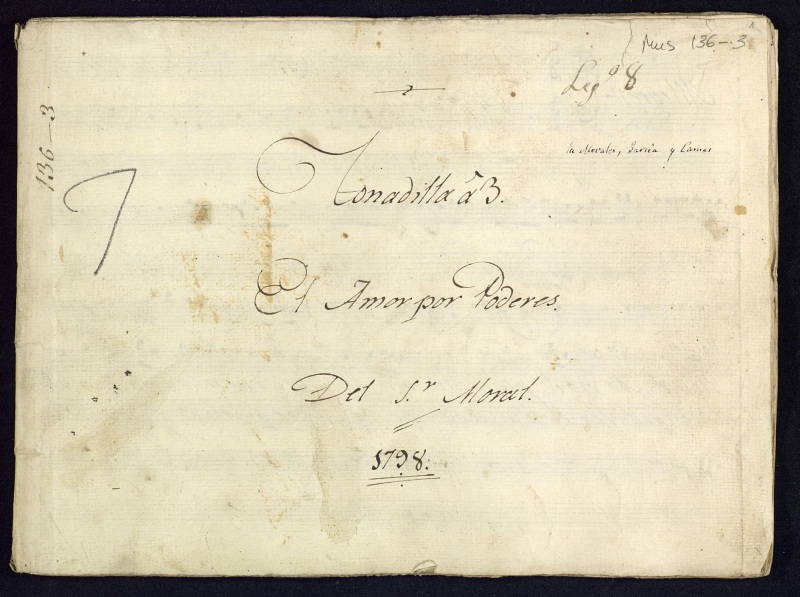 Mus 136-3
Leg.º 8
136-3
la Morales, García y Camas
Tonadilla â 3.
El Amor por Poderes.
Del S.r Moral.
1798.